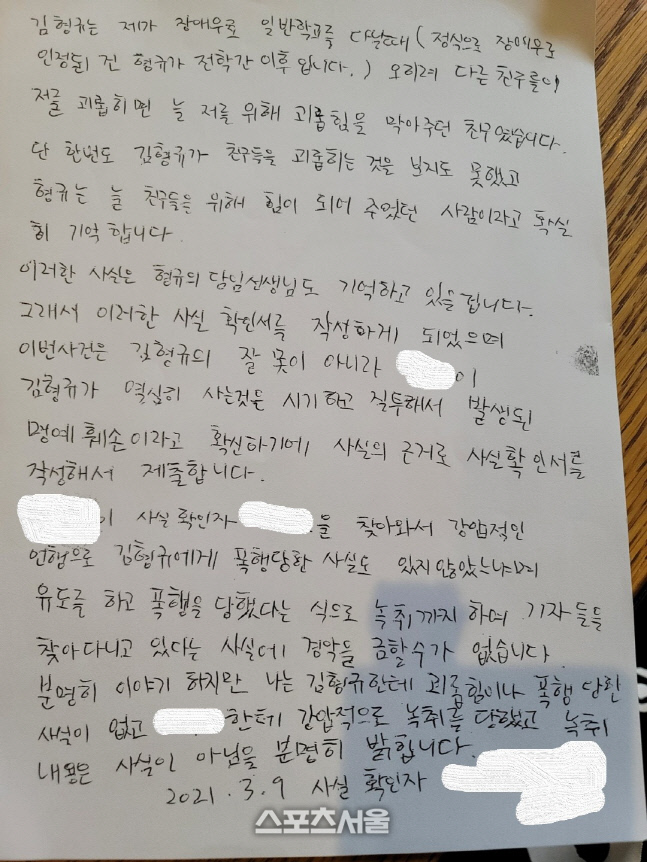 김형규는 제가 장애우로 일반학교를 다닐때 (정식으로 장애우로
인정된 건 형규가 전학간 이후입니다.) 오히려 다른 친구들이
저를 괴롭히면 늘 저를 위해 괴롭힘을 막아주던 친구였습니다.
단 한번도 김형규가 친구들을 괴롭히는 것을 보지도 못했고
형규는 늘 친구들을 위해 힘이 되어 주었던 사람이라고 확실
히 기억합니다.
이러한 사실은 형규의 담임선생님도 기억하고 있을 겁니다.
그래서 이러한 사실 확인서를 작성하게 되었으며
이번사건은 김형규의 잘못이 아니라 이
김형규가 열심히 사는것을 시기하고 질투해서 발생된
명예훼손이라고 확신하기에 사실의 근거로 사실확인서를
작성해서 제출합니다.
이 사실확인자 을 찾아와서 강압적인
언행으로 김형규에게 폭행당한 사실도 있지않았느냐며
유도를 하고 폭행을 당했다는 식으로 녹취까지 하며 기자들을
찾아다니고 있다는 사실에 경악을 금할수가 없습니다.
분명히 이야기 하지만 나는 김형규한테 괴롭힘이나 폭행 당한
사실이 없고 한테 강압적으로 녹취를 당했고 녹취
내용은 사실이 아님을 분명히 밝힙니다.
2021. 3. 9 사실 확인자
스포츠서울